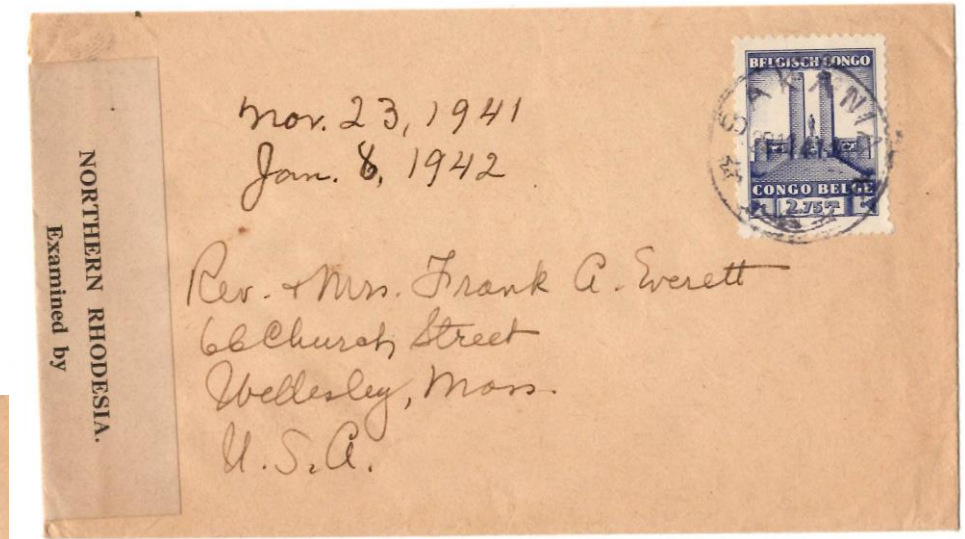 NORTHERN RHODESIA.
Examined by
Nov. 23, 1941
Jan. 8, 1942
BELGISCH CONGO
SAKANIA
CONGO BELGE
2.75
Rev. & Mrs. Frank A. Everett
66 Church Street
Wellesley, Mass.
U.S.A.